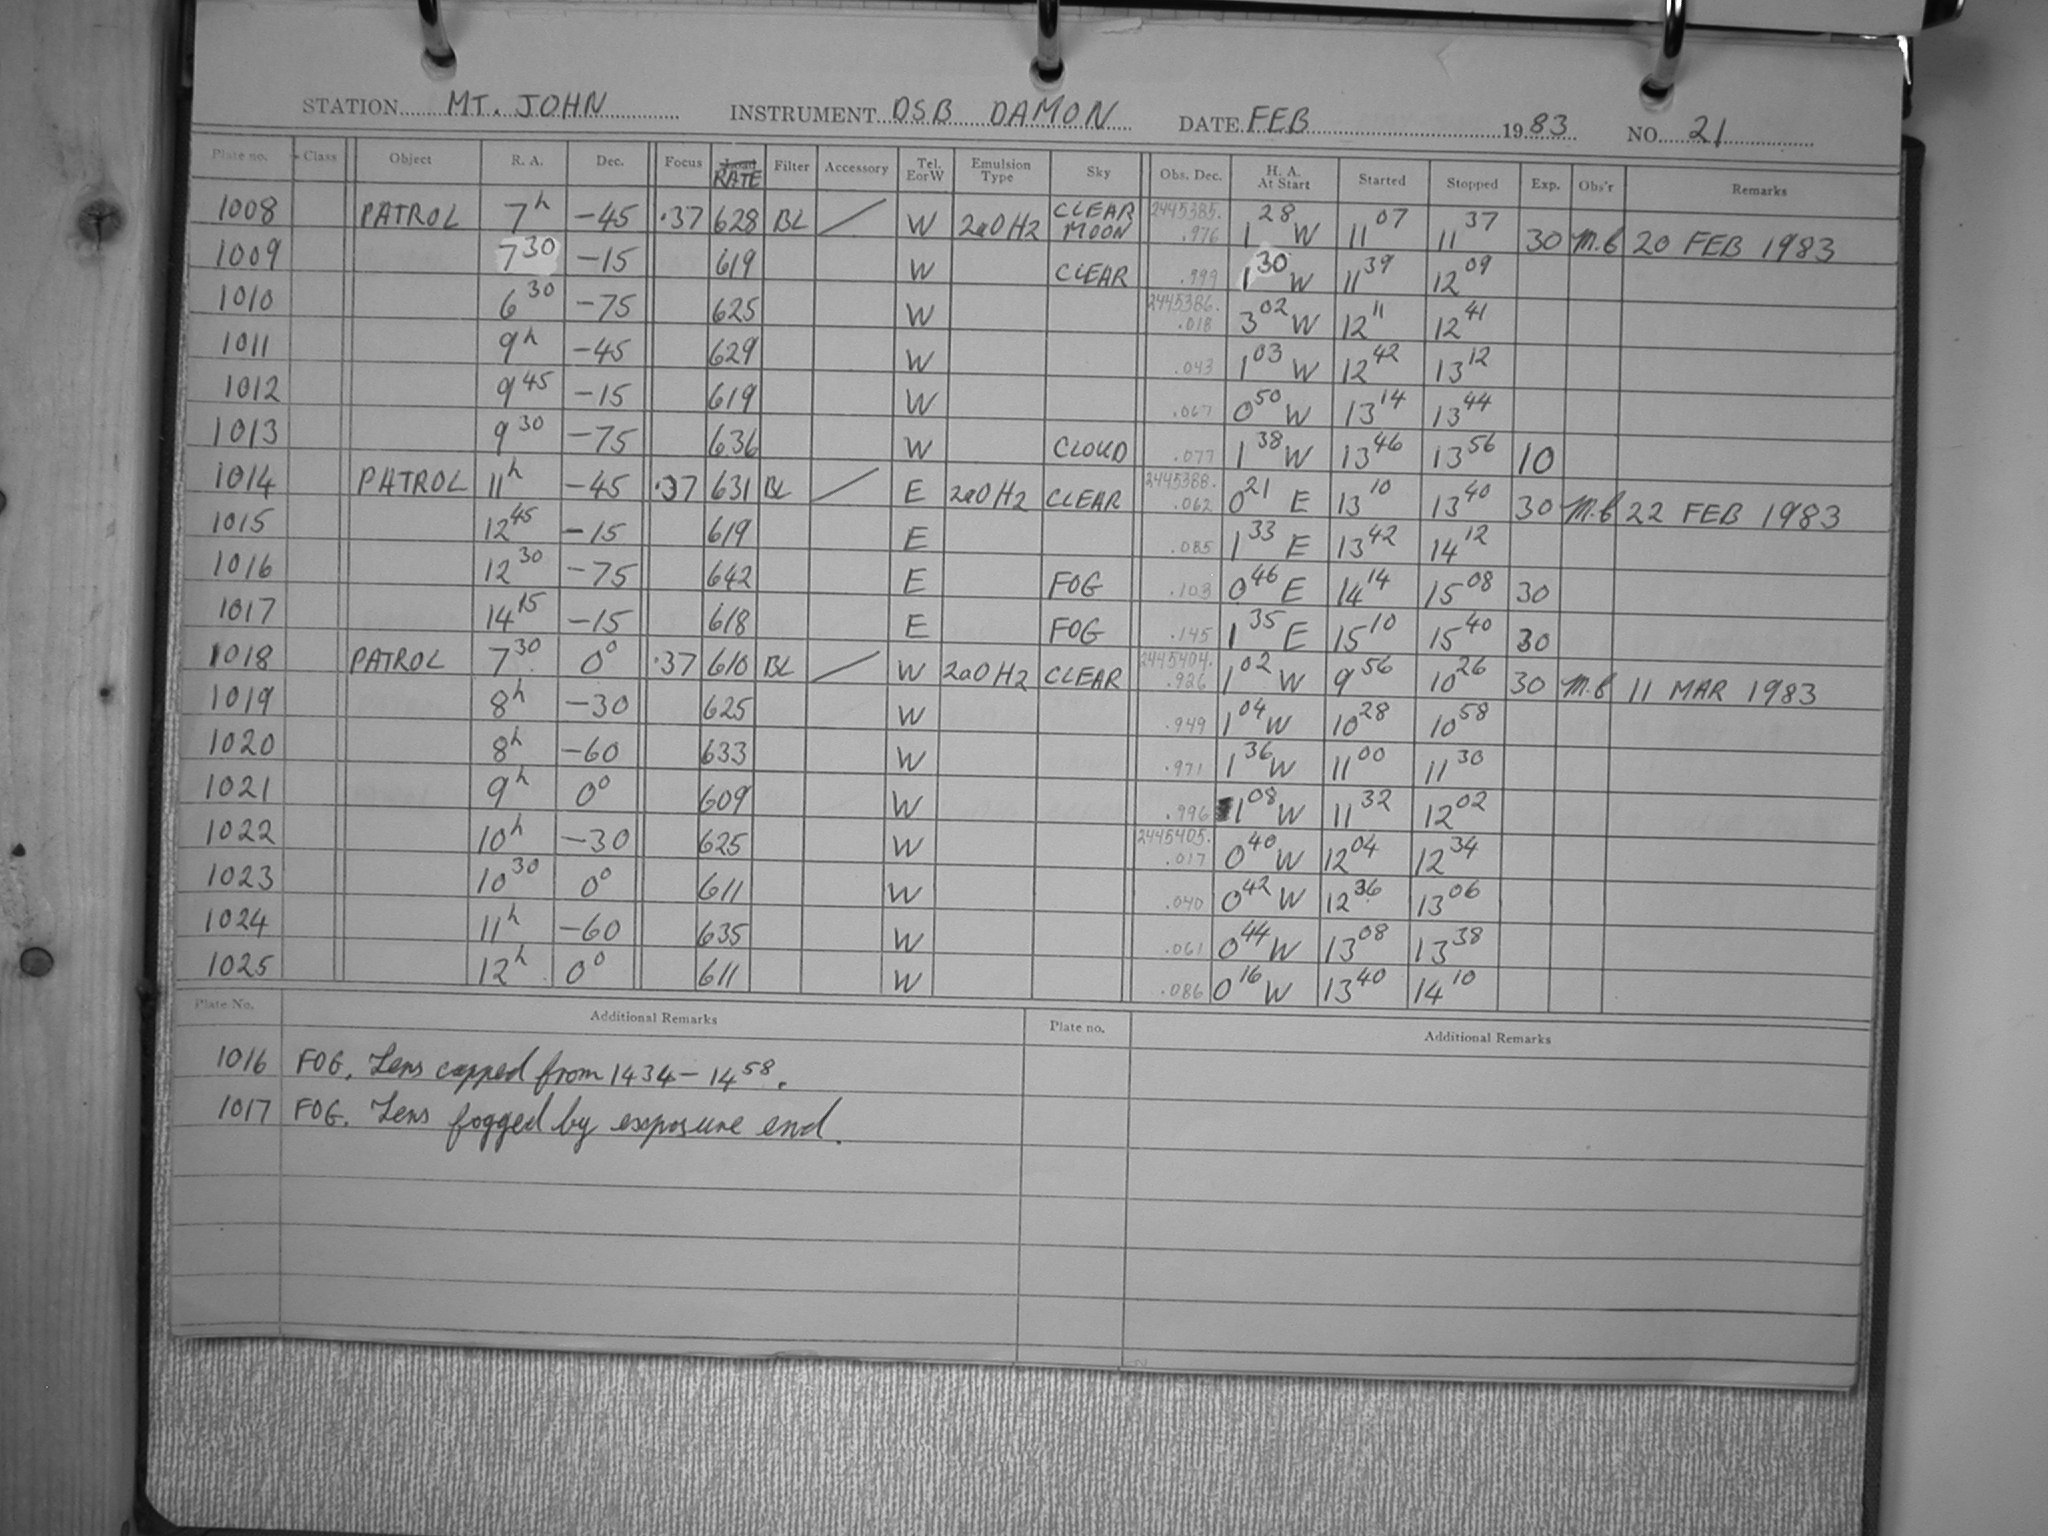 STATION MT. JOHN INSTRUMENT DSB DAMON DATE FEB 1983 NO. 21
Plate no. Class Object R. A. Dec. Focus RATE Filter Accessory Tel. EorW Emulsion Type Sky Obs. Dec. H. A. At Start Started Stopped Exp. Obs'r Remarks
1008 PATROL 7h -45 .37 628 BL / W 2aOH2 CLEAR MOON 2445385. .976 1 28 W 11 07 11 37 30 M.B 20 FEB 1983
1009 7 30 -15 619 W CLEAR .999 1 30 W 11 39 12 09
1010 6 30 -75 625 W 2445386. .018 3 02 W 12 11 12 41
1011 9h -45 629 W .043 1 03 W 12 42 13 12
1012 9 45 -15 619 W .067 0 50 W 13 14 13 44
1013 9 30 -75 636 W CLOUD .077 1 38 W 13 46 13 56 10
1014 PATROL 11h -45 .37 631 BL / E 2aOH2 CLEAR 2445388. .062 0 21 E 13 10 13 40 30 M.B 22 FEB 1983
1015 12 45 -15 619 E .085 1 33 E 13 42 14 12
1016 12 30 -75 642 E FOG .103 0 46 E 14 14 15 08 30
1017 14 15 -15 618 E FOG .145 1 35 E 15 10 15 40 30
1018 PATROL 7 30 0° .37 610 BL / W 2aOH2 CLEAR 2445404. .926 1 02 W 9 56 10 26 30 M.B 11 MAR 1983
1019 8h -30 625 W .949 1 04 W 10 28 10 58
1020 8h -60 633 W .971 1 36 W 11 00 11 30
1021 9h 0° 609 W .996 1 08 W 11 32 12 02
1022 10h -30 625 W 2445405. .017 0 40 W 12 04 12 34
1023 10 30 0° 611 W .040 0 42 W 12 36 13 06
1024 11h -60 635 W .061 0 44 W 13 08 13 38
1025 12h 0° 611 W .086 0 16 W 13 40 14 10
Plate No. Additional Remarks Plate no. Additional Remarks
1016 FOG. Lens capped from 1434 - 14 58.
1017 FOG. Lens fogged by exposure end.